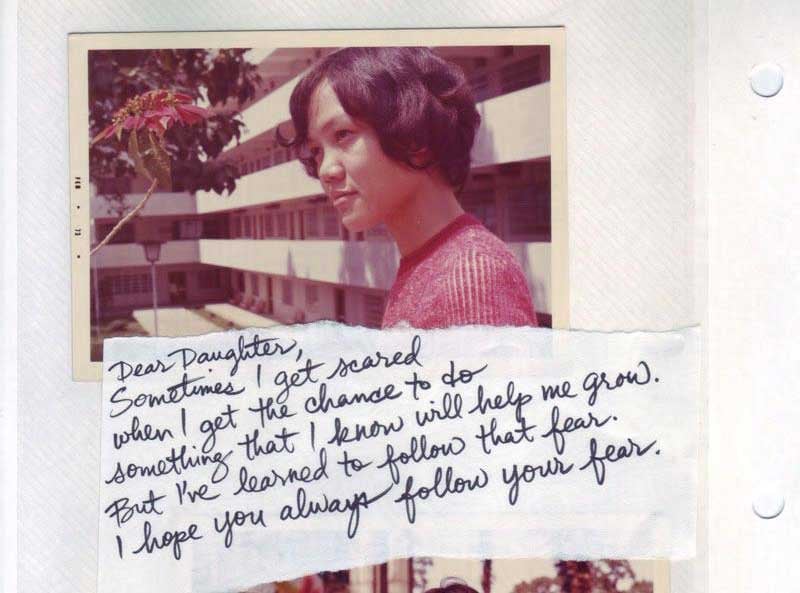 FEB • 73 •
Dear Daughter,
Sometimes I get scared
when I get the chance to do
something that I know will help me grow.
But I've learned to follow that fear.
I hope you always follow your fear.